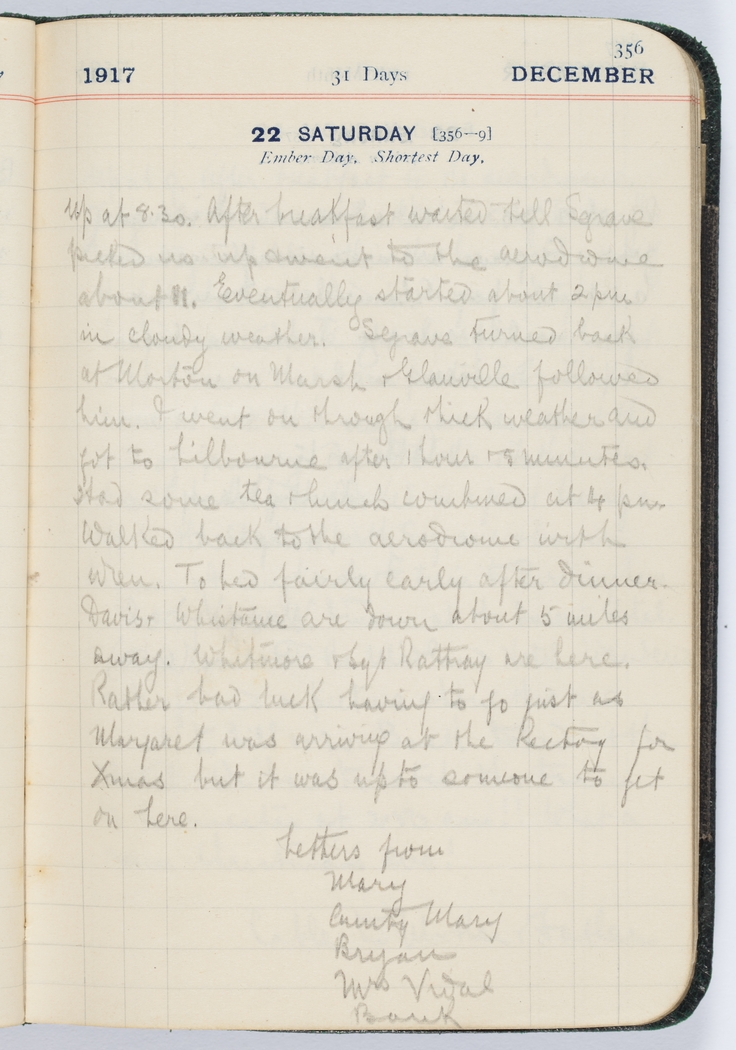 356
1917 31 Days DECEMBER
22 SATURDAY [356—9]
Ember Day. Shortest Day.
Up at 8.30. After breakfast waited till Segrave
picked us up & went to the aerodrome
about 11. Eventually started about 2 pm
in cloudy weather. Segrave turned back
at Morton on Marsh & Glanville followed
him. I went on through thick weather and
got to Lilbourne after 1 hour & 5 minutes.
Had some tea & lunch combined at 4 pm.
Walked back to the aerodrome with
Wren. To bed fairly early after dinner.
Davis & are down about 5 miles
away. Whitmore & Sgt Rattray are here.
Rather bad luck having to go just as
Margaret was arriving at the Rectory for
Xmas but it was up to someone to get
on here.
Letters from
Mary
Aunty Mary
Bryan
Mrs Vidal
Bank